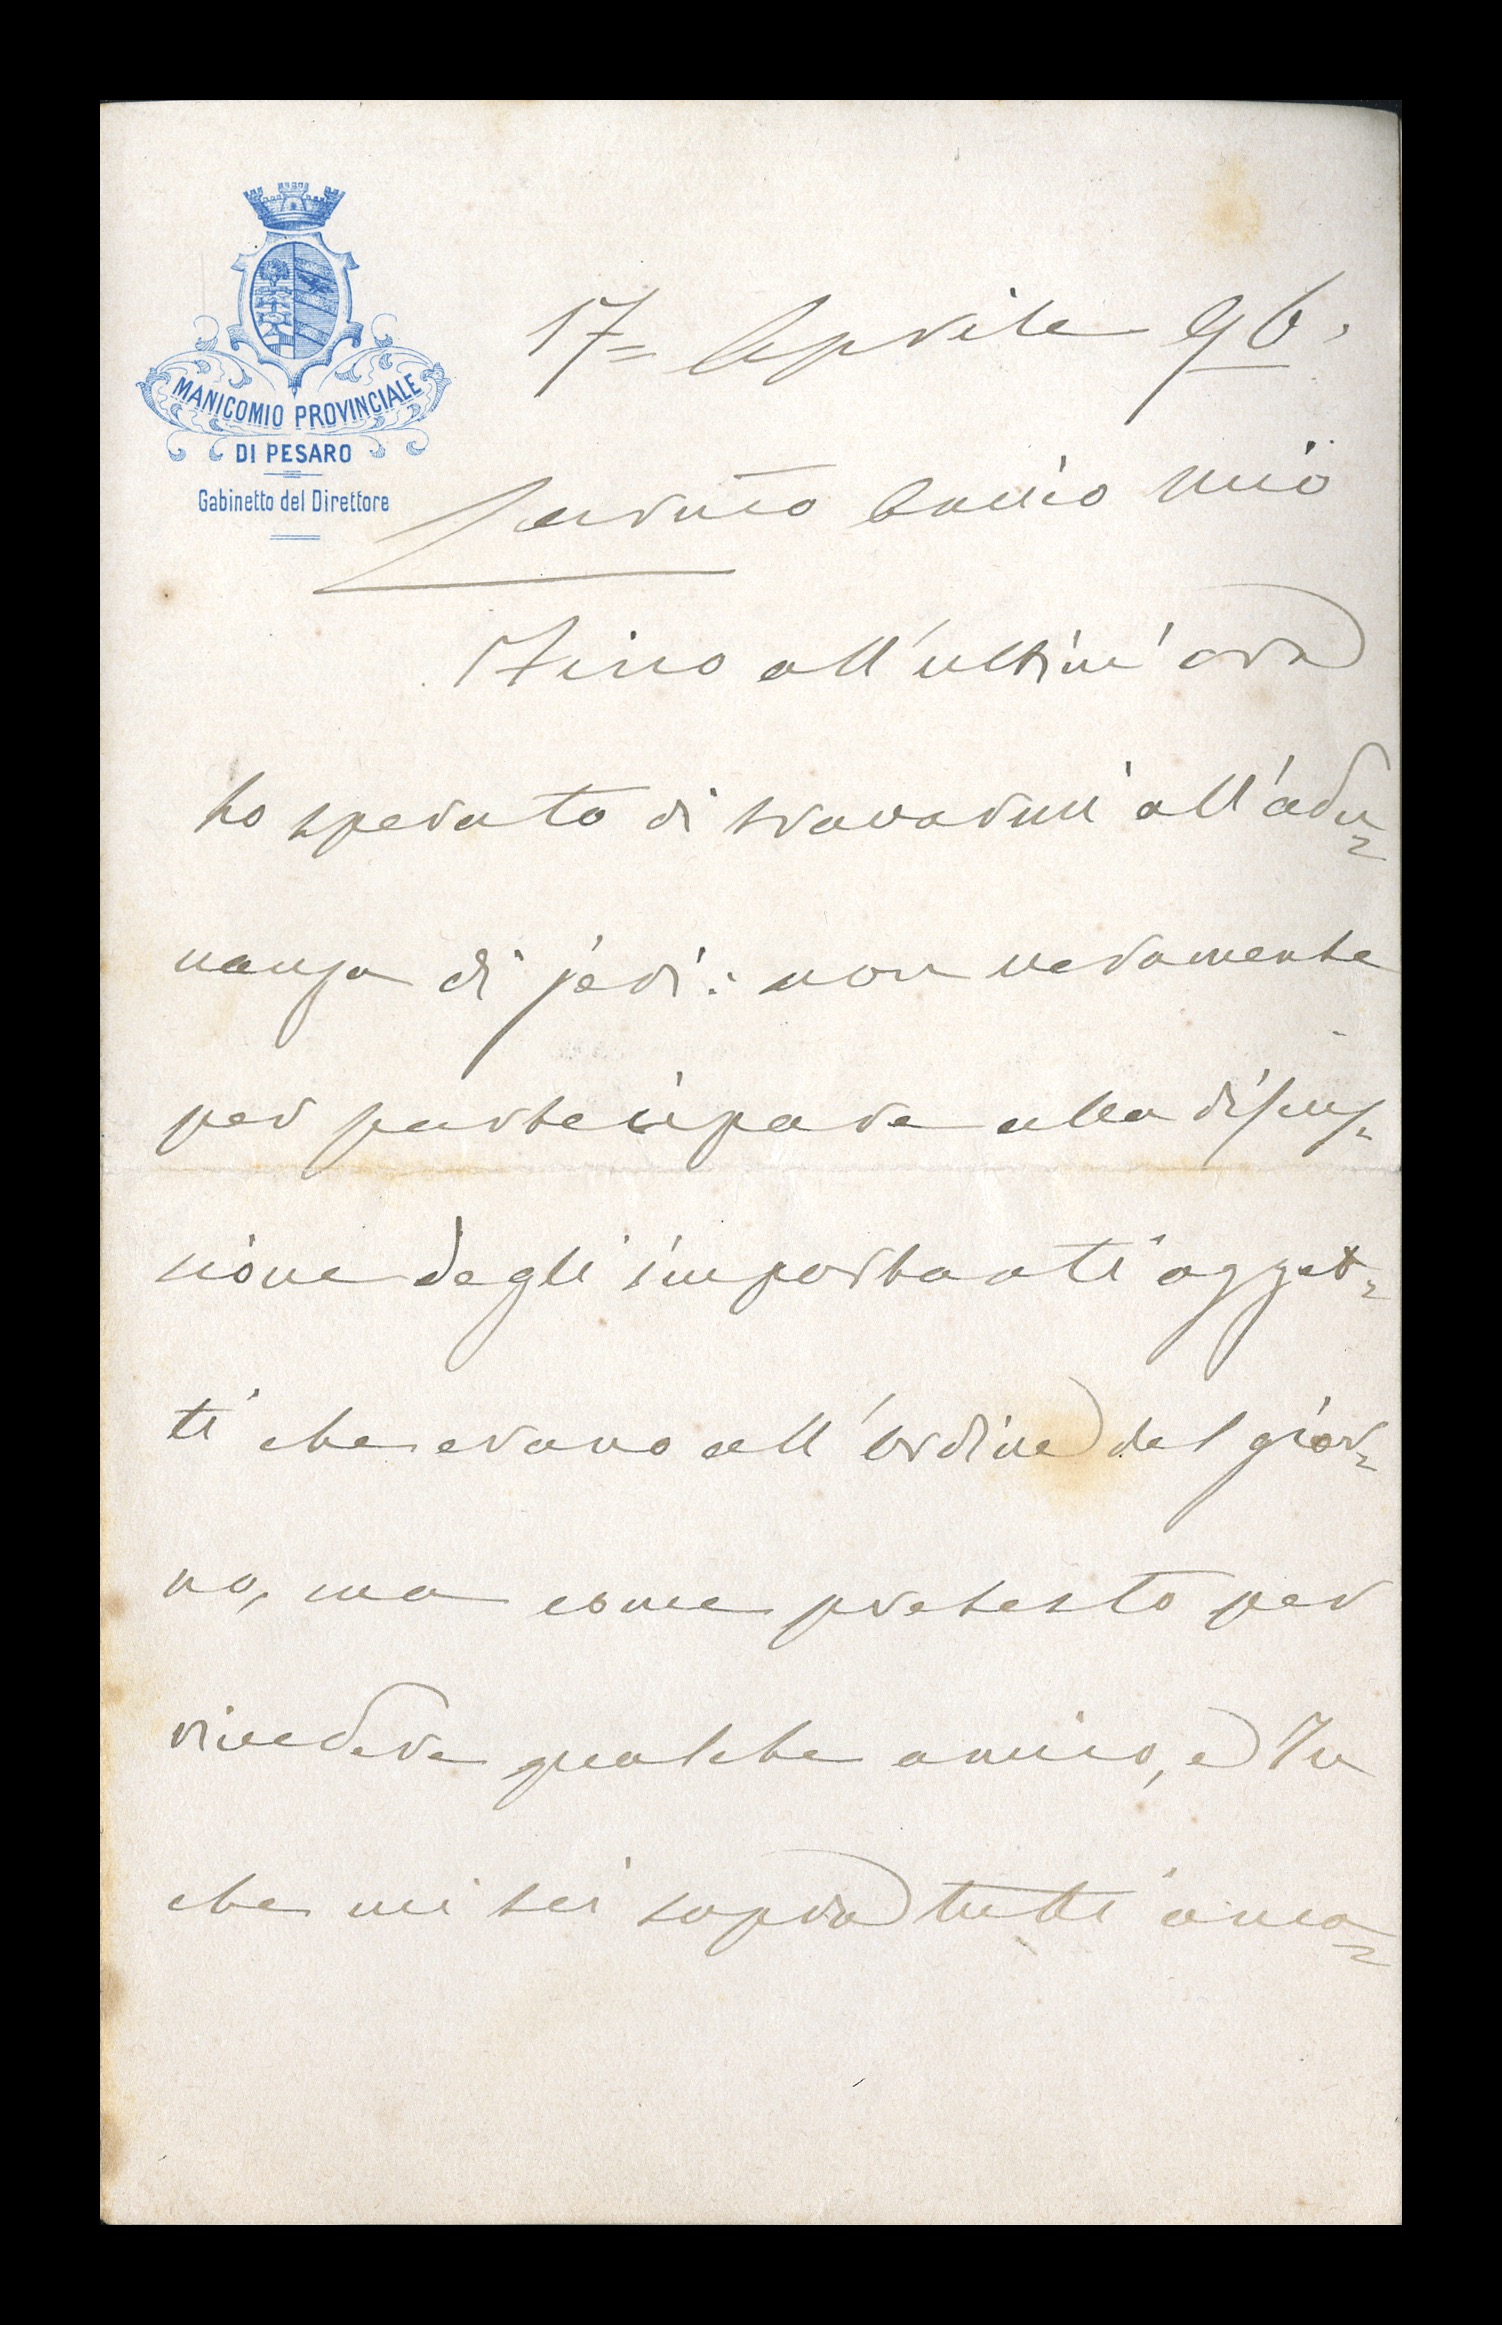 MANICOMIO PROVINCIALE
DI PESARO
Gabinetto del Direttore
17= Aprile 96.
Carissimo Amico mio
Fino all'ultim'ora
ho sperato di trovarmi all'adu=
nanza di jeri: non veramente
per partecipare alla discus=
sione degli importanti ogget=
ti che erano all'ordine del gior=
no, ma come pretesto per
rivedere qualche amico, e Tu
che mi sei sopra tutti amo=